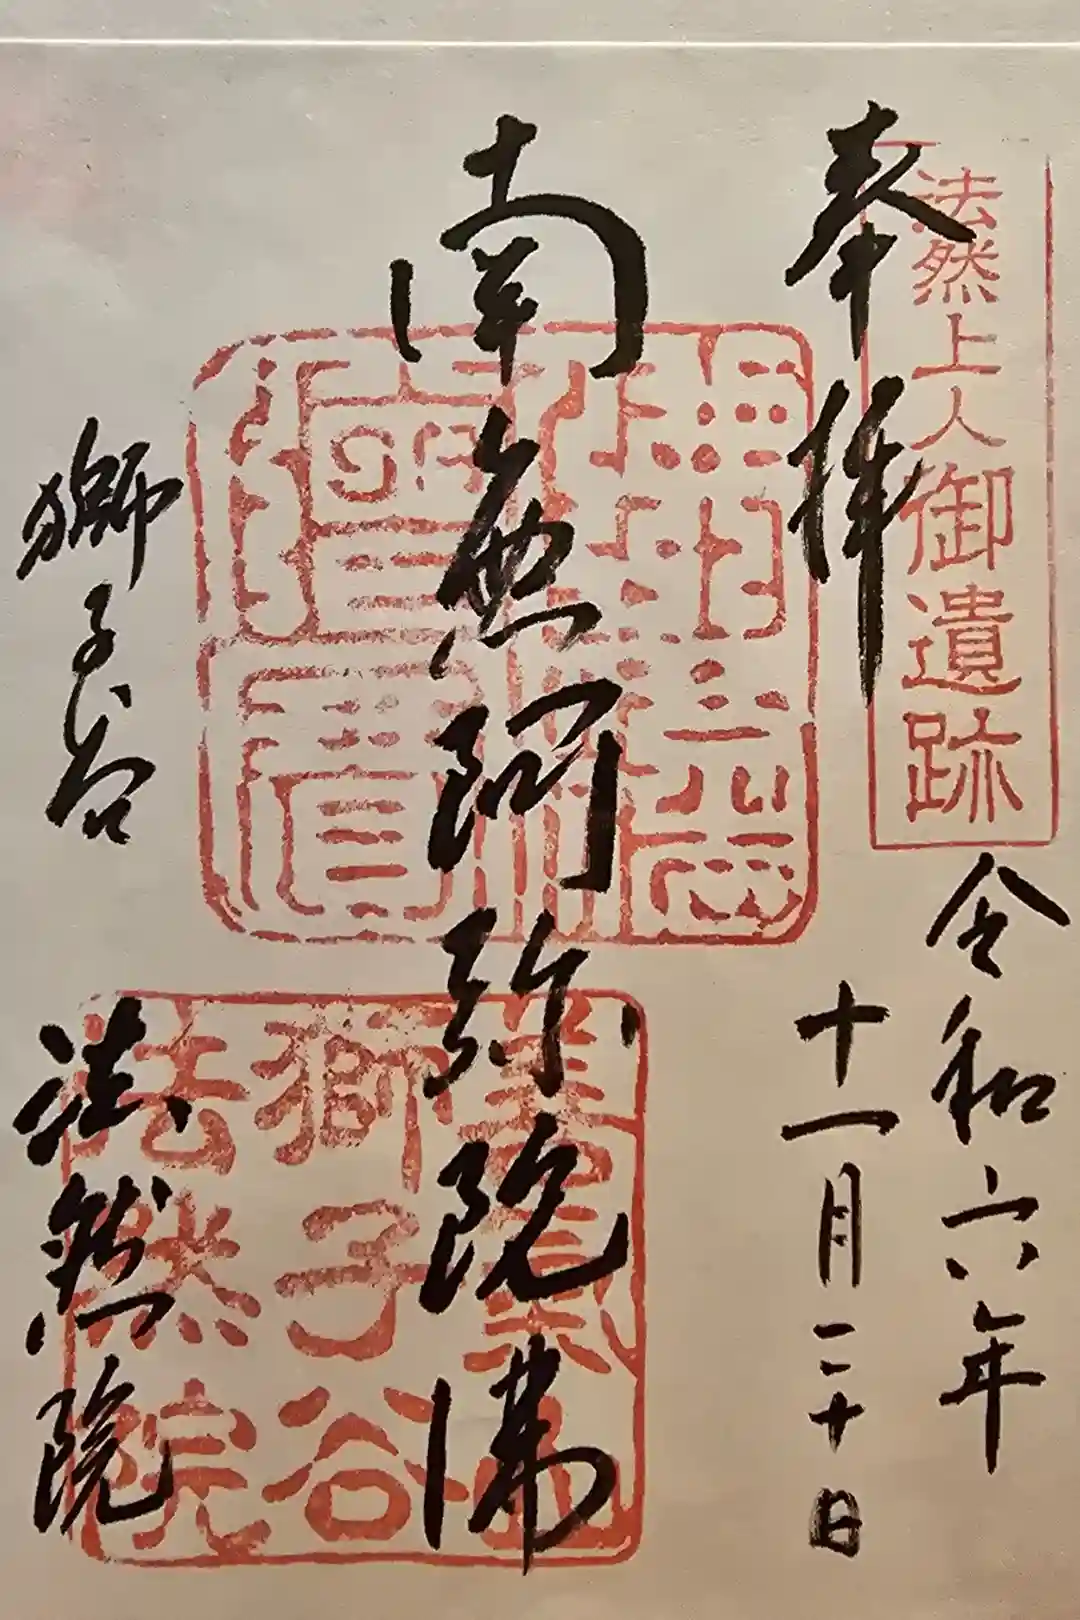 法然上人御遺跡
奉拝
令和六年
十一月二十日
南無阿弥陀佛
獅子谷
法然院
善氣山
獅子谷
法然院